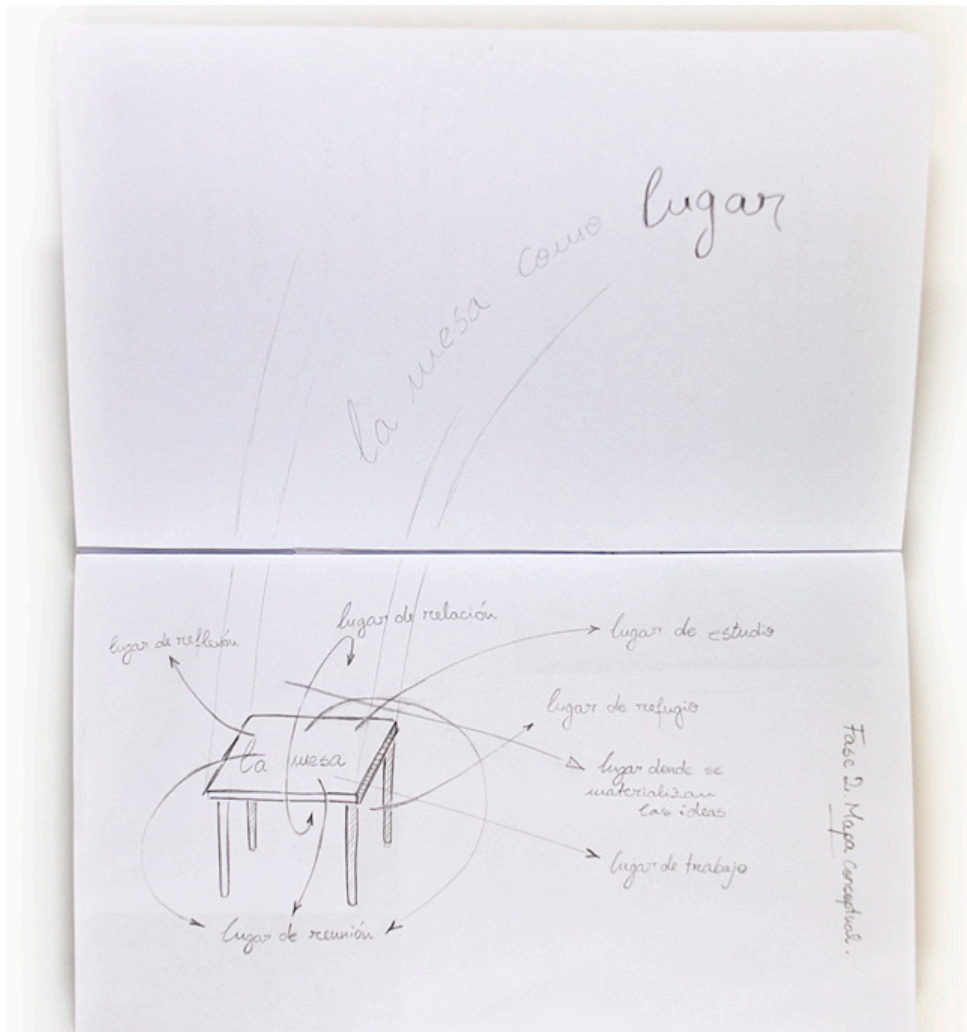 la mesa como lugar
lugar de relación
lugar de reflexión
lugar de estudio
lugar de refugio
la mesa
lugar donde se
materializan
las ideas
lugar de trabajo
lugar de reunión
Fase 2. Mapa conceptual.